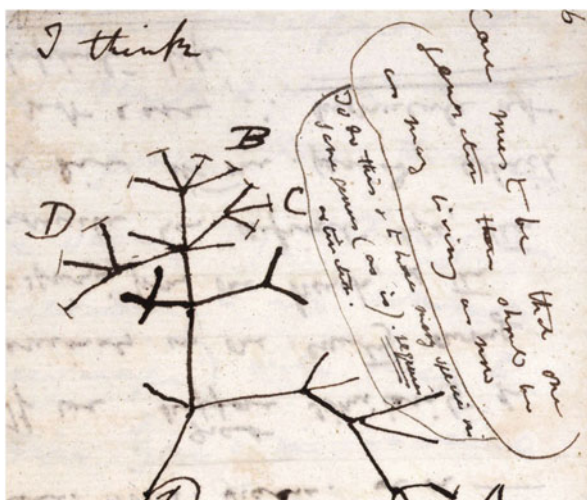 I think
Case must be that one
generation then should be
as many living as now
To do this & to have many species in
same genus (as is). requires
extinction.
B
C
D